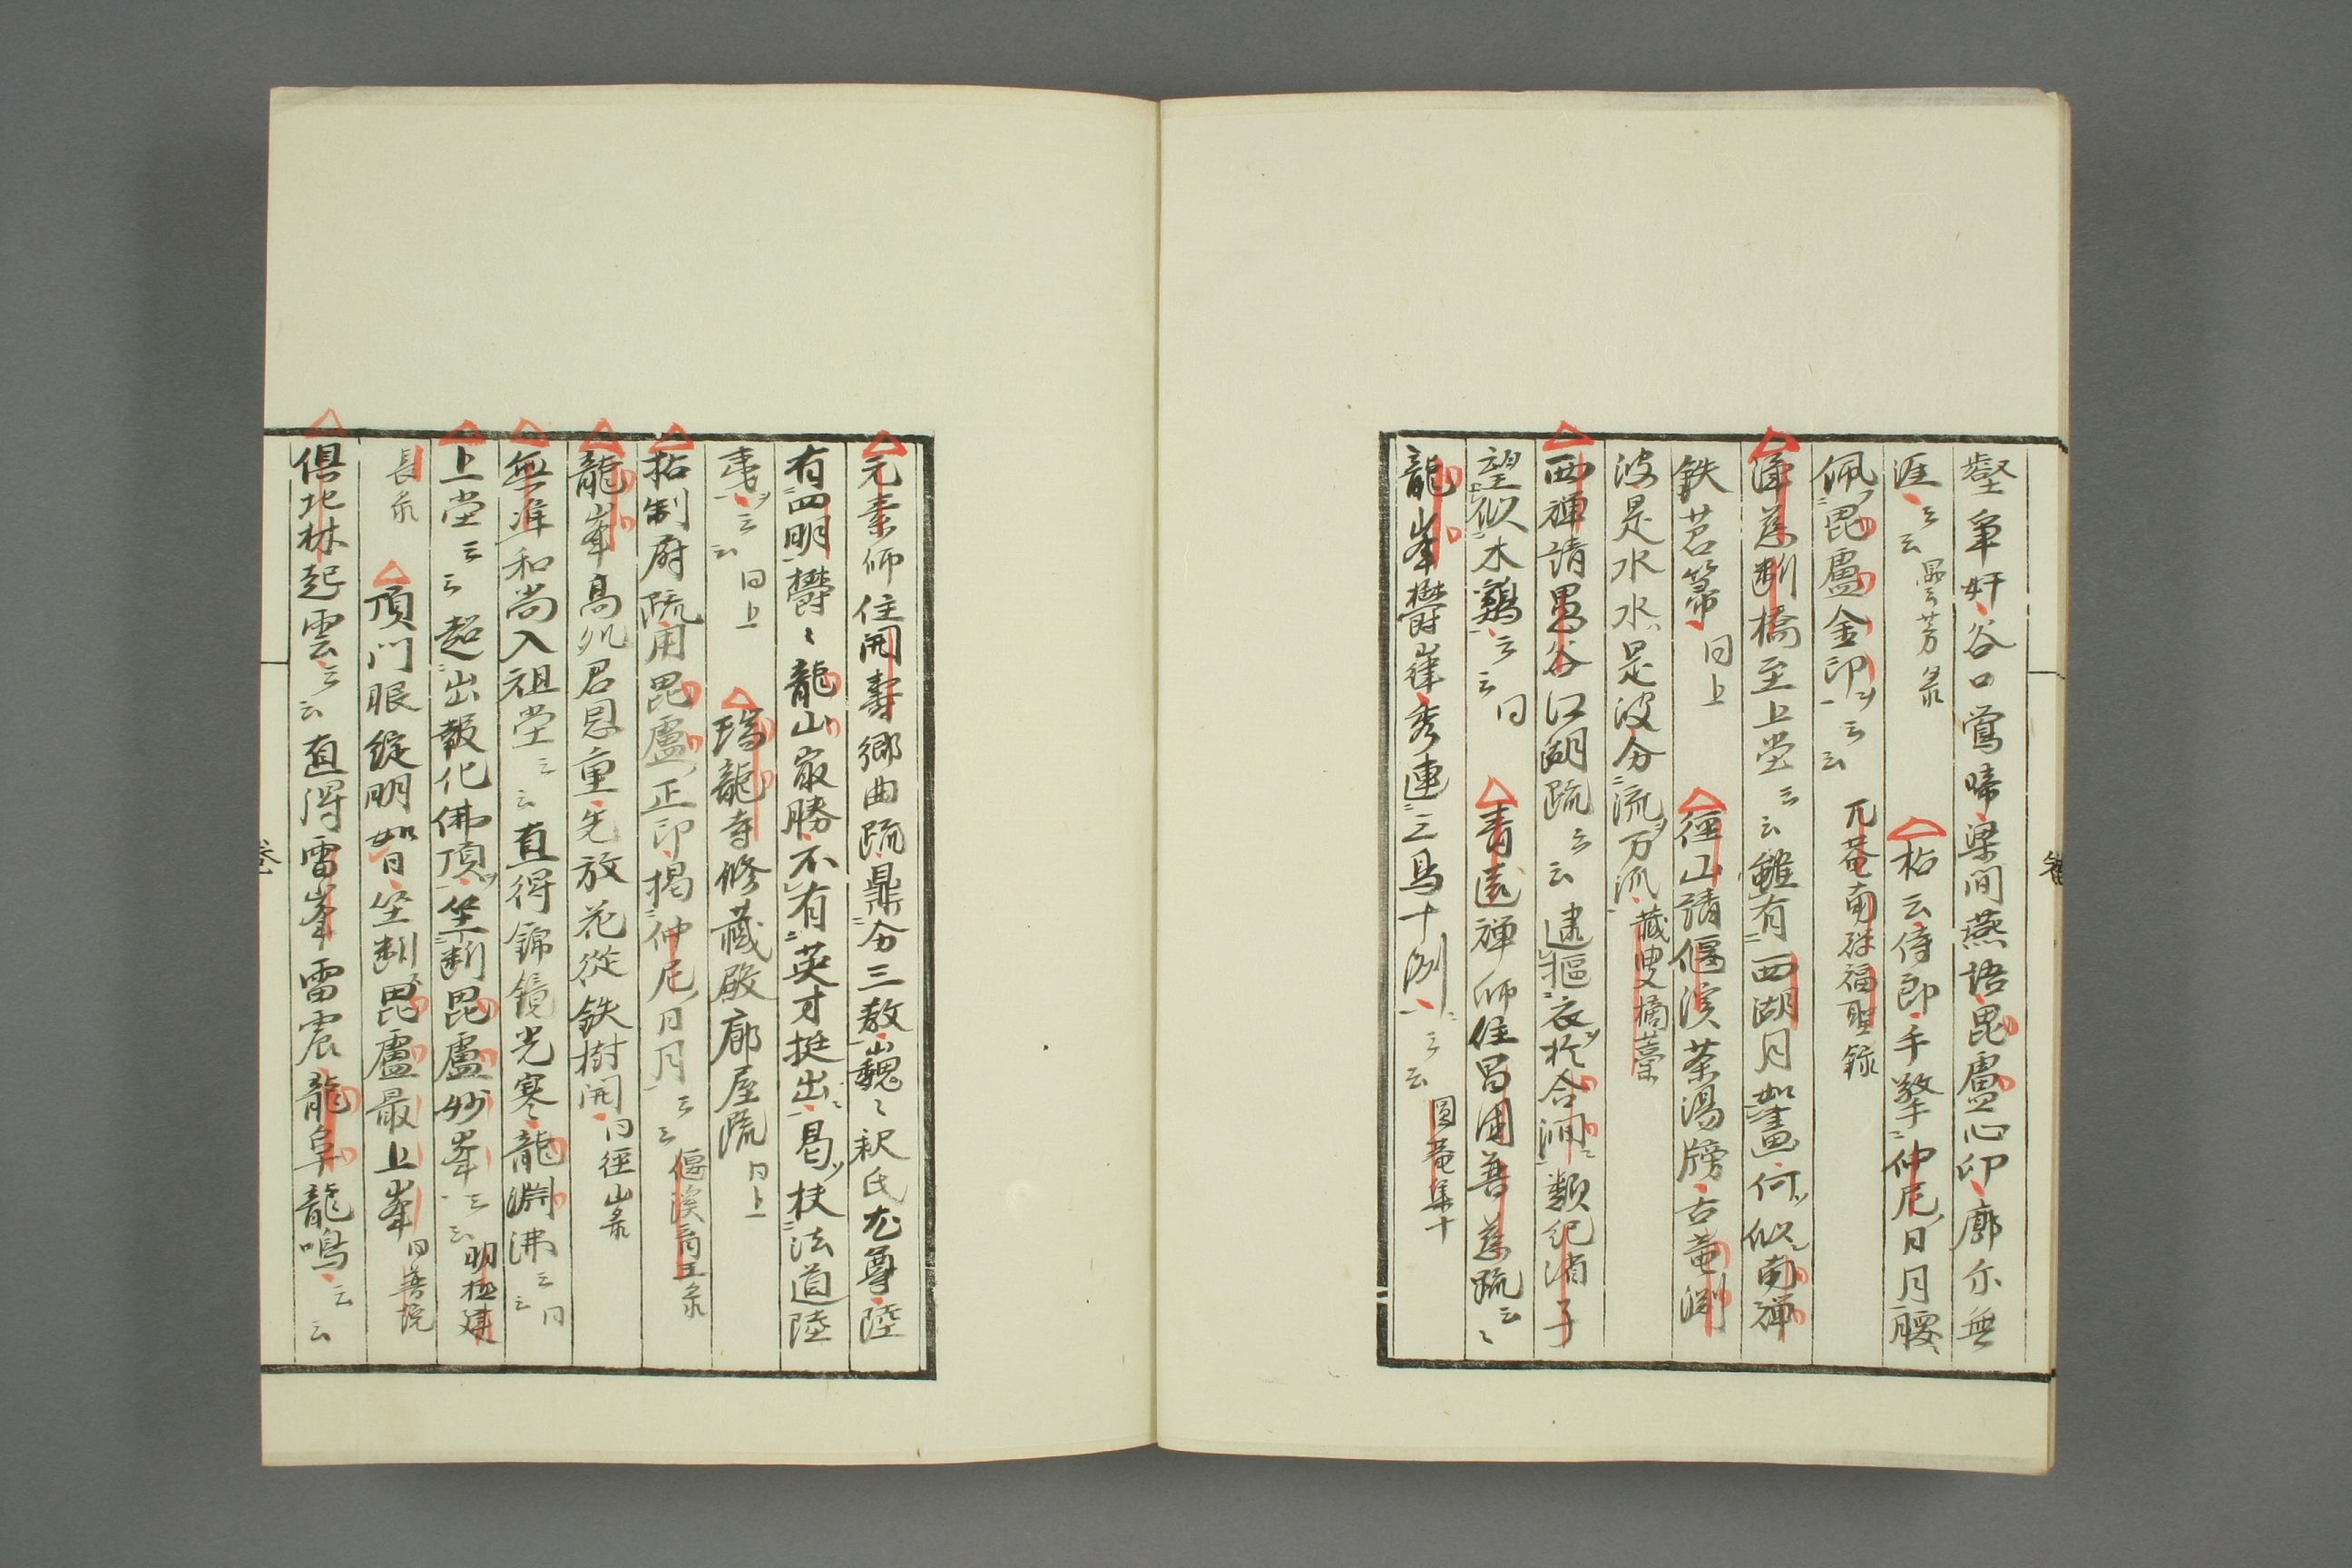 壑爭妍谷口鶯啼梁間燕語毘盧心印廓尓無
涯云云 曇芳录 拈云侍郎手擎仲尼日月腰
佩毘盧金印云云 兀菴南禅福聖録
浄慈断橋至上堂云云雖有西湖月如畫何似南禅
鉄苕箒 同上 徑山請偃溪茶湯牓古竜渕
波是水水是波分流万派 藏叟摘藁
西禅請愚谷江湖疏云云逮摳衣於合澗類紀渻子
望似木鷄云云 同 青遠禅師住昌国普慈疏云云
龍峯欝嶵秀連三島十洲云云 圓菴集十
元素師住開壽鄉曲疏鼎分三教巍巍釈氏尤尊陸
有四明欝欝龍山最勝不有英才挺出曷扶法道陸
夷云云 同上 瑞龍寺修藏殿廊屋疏 同上
拈制府疏用毘盧正印揭仲尼日月云云 偃溪育王录
龍峯高処君恩重先放花從鉄樹開 同徑山录
無準和尚入祖堂云云直得錦鏡光寒龍淵沸云云 同
上堂云云超出報化佛頂坐断毘盧妙峯云云 明極建
長录 頂門眼綻明如日坐断毘盧最上峯 同普説
倶北林起雲云云直得雷峯雷震龍阜龍鳴云云